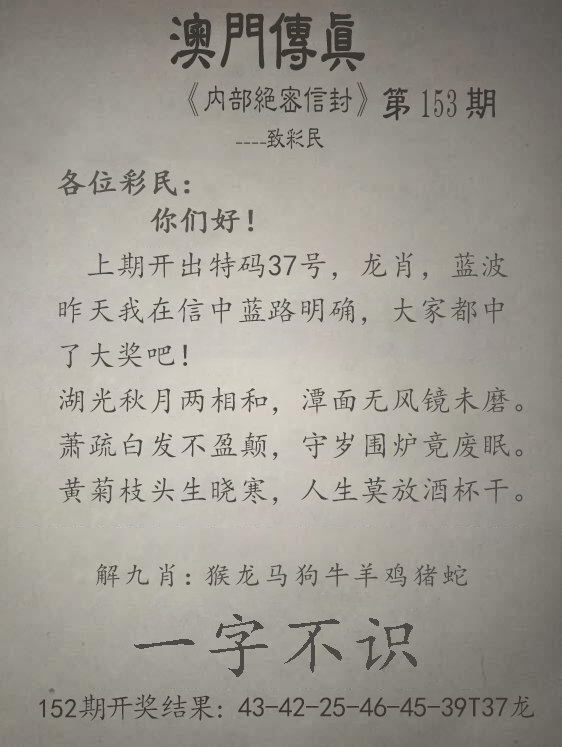 澳門傳眞
《内部絕密信封》第153期
----致彩民
各位彩民：
你们好！
上期开出特码37号，龙肖，蓝波
昨天我在信中蓝路明确，大家都中
了大奖吧！
湖光秋月两相和，潭面无风镜未磨。
萧疏白发不盈颠，守岁围炉竟废眠。
黄菊枝头生晓寒，人生莫放酒杯干。
解九肖：猴龙马狗牛羊鸡猪蛇
一字不识
152期开奖结果：43-42-25-46-45-39T37龙